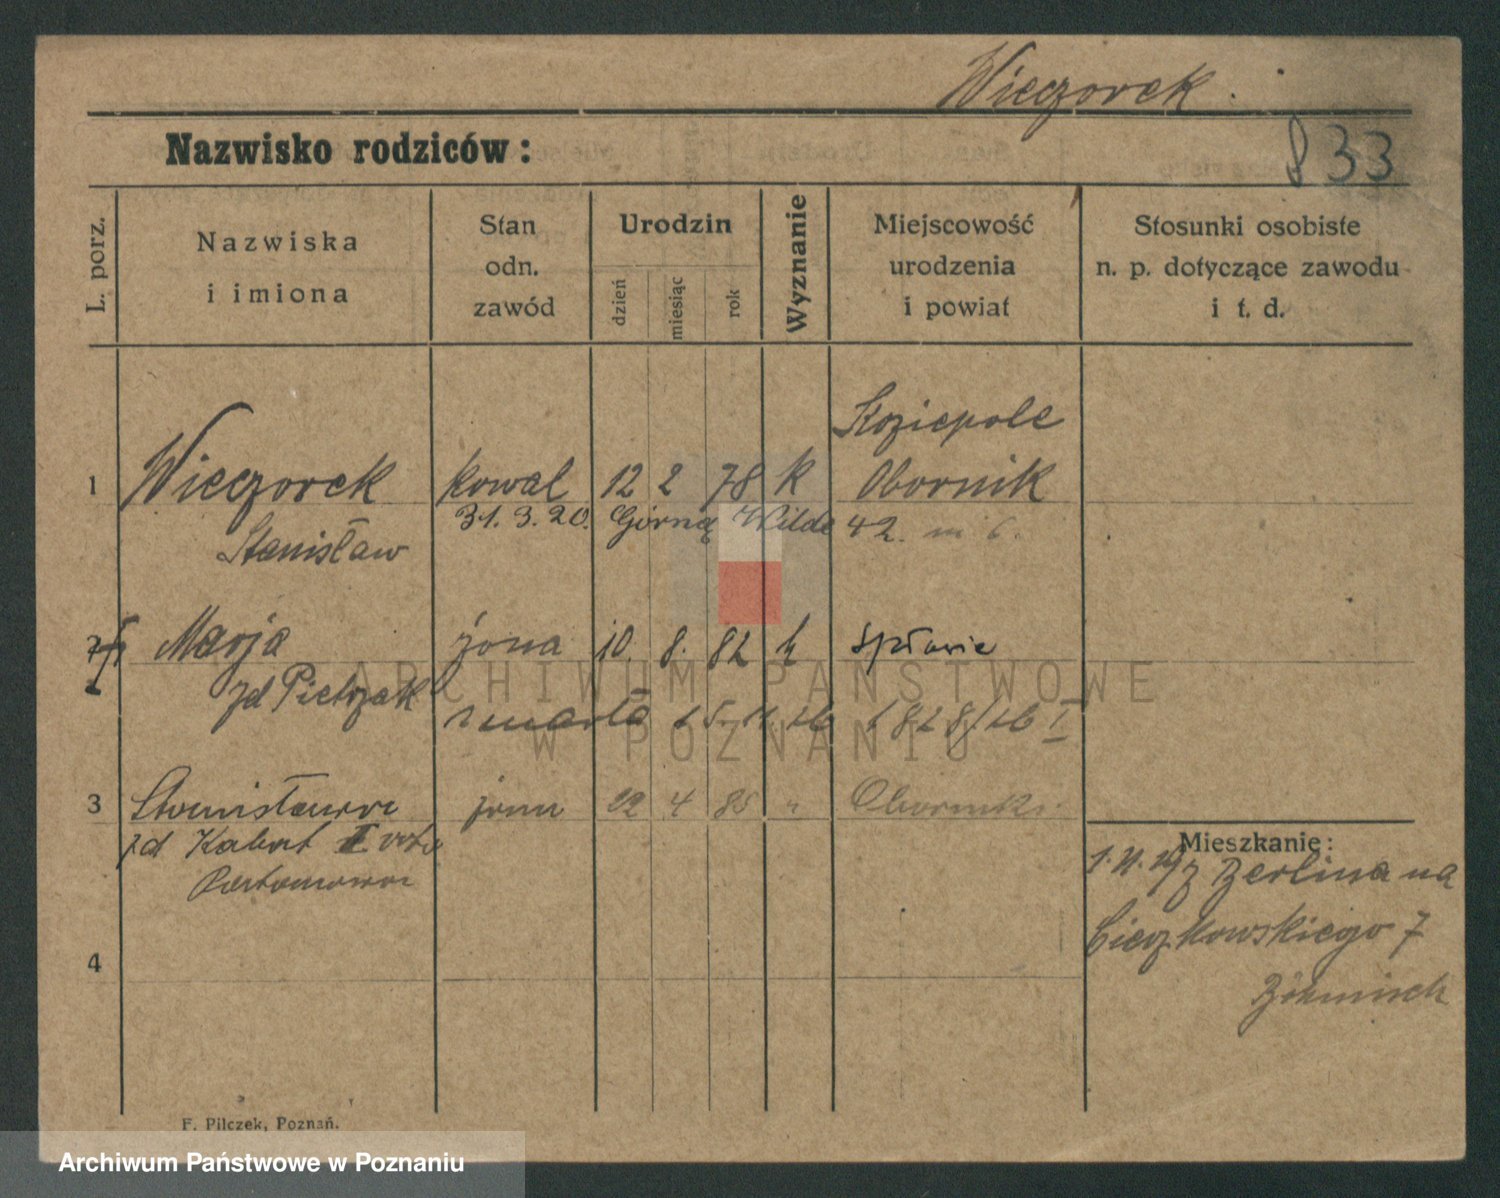 Wieczorek.
Nazwisko rodziców:
833
L. porz.
Nazwiska
i imiona
Stan
odn.
zawód
Urodzin
dzień
miesiąc
rok
Wyznanie
Miejscowość
urodzenia
i powiat
Stosunki osobiste
n. p. dotyczące zawodu
i t. d.
Koziepole
1 Wieczorek kowal 12 2 78 k Obornik
31. 3. 20. Górną Wilde 42. m 6.
Stanisław
2 Marja żona 10. 8. 82 k Spławie
zd Pietrzak
zmarła 15. 11. 26 1828/26 I
3 Stanisława żona 22 4 85 " Oborniki
zd Kabat II voto
4
Mieszkanie:
z Berlina na
Cieszkowskiego 7
Böhmisch
F. Pilczek, Poznań.
ARCHIWUM PAŃSTWOWE
W POZNANIU
Archiwum Państwowe w Poznaniu